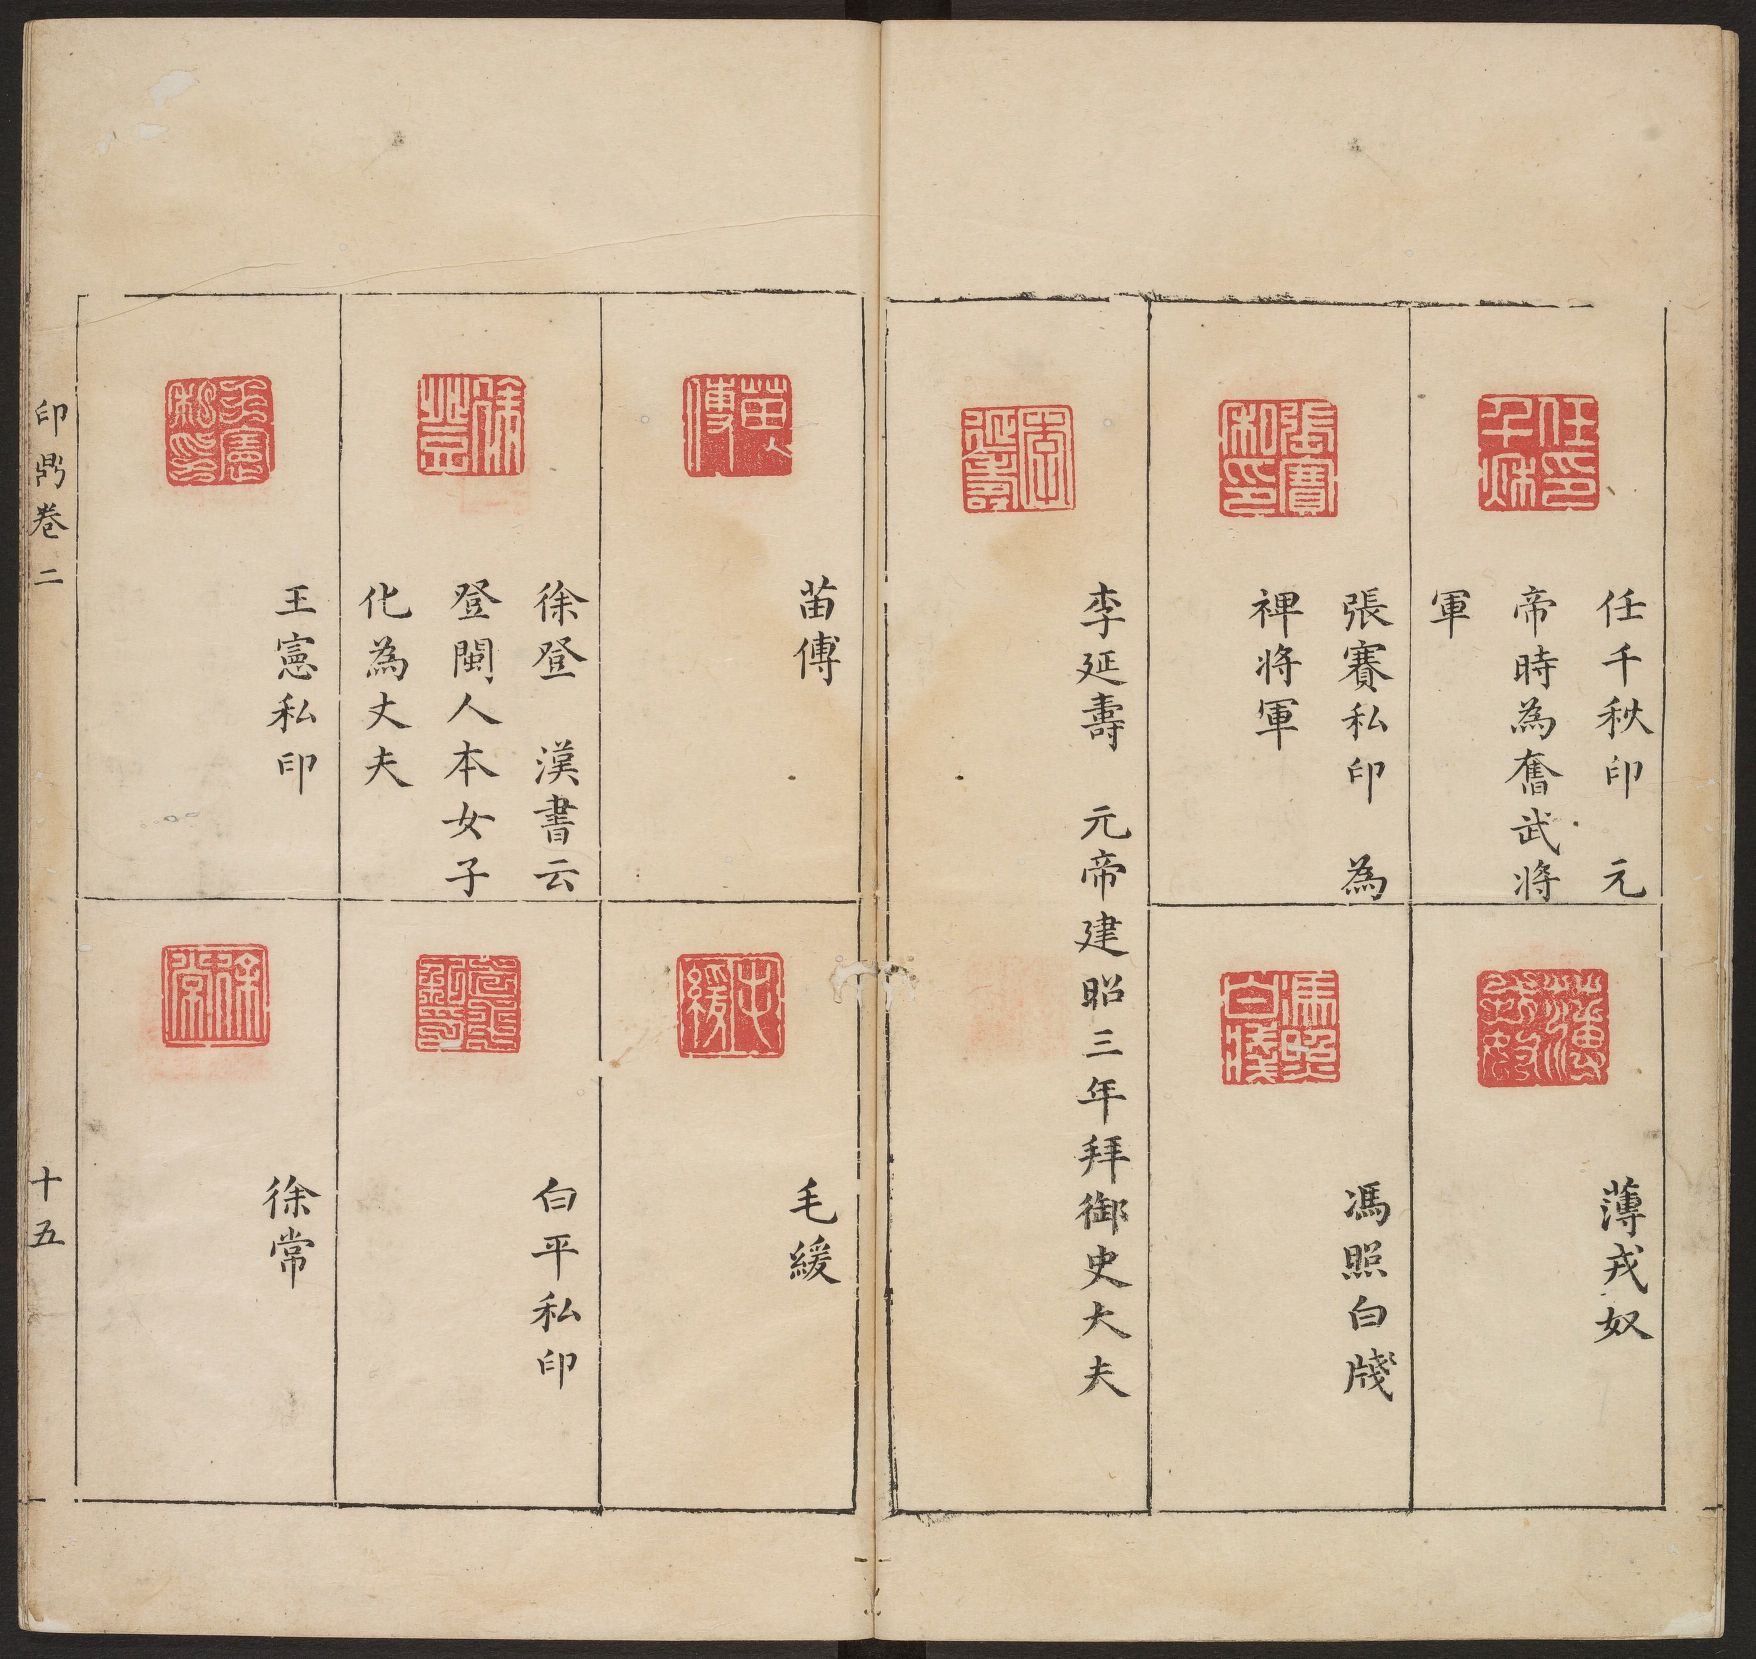 任千秋印 元
帝時為奮武將
軍
張賽私印 為
裨将軍
李延壽 元帝建昭三年拜御史大夫
薄戎奴
馮照白牋
苗傅
徐登 漢書云
登閩人本女子
化為丈夫
王憲私印
毛緩
白平私印
徐常
印鼎卷二
十五